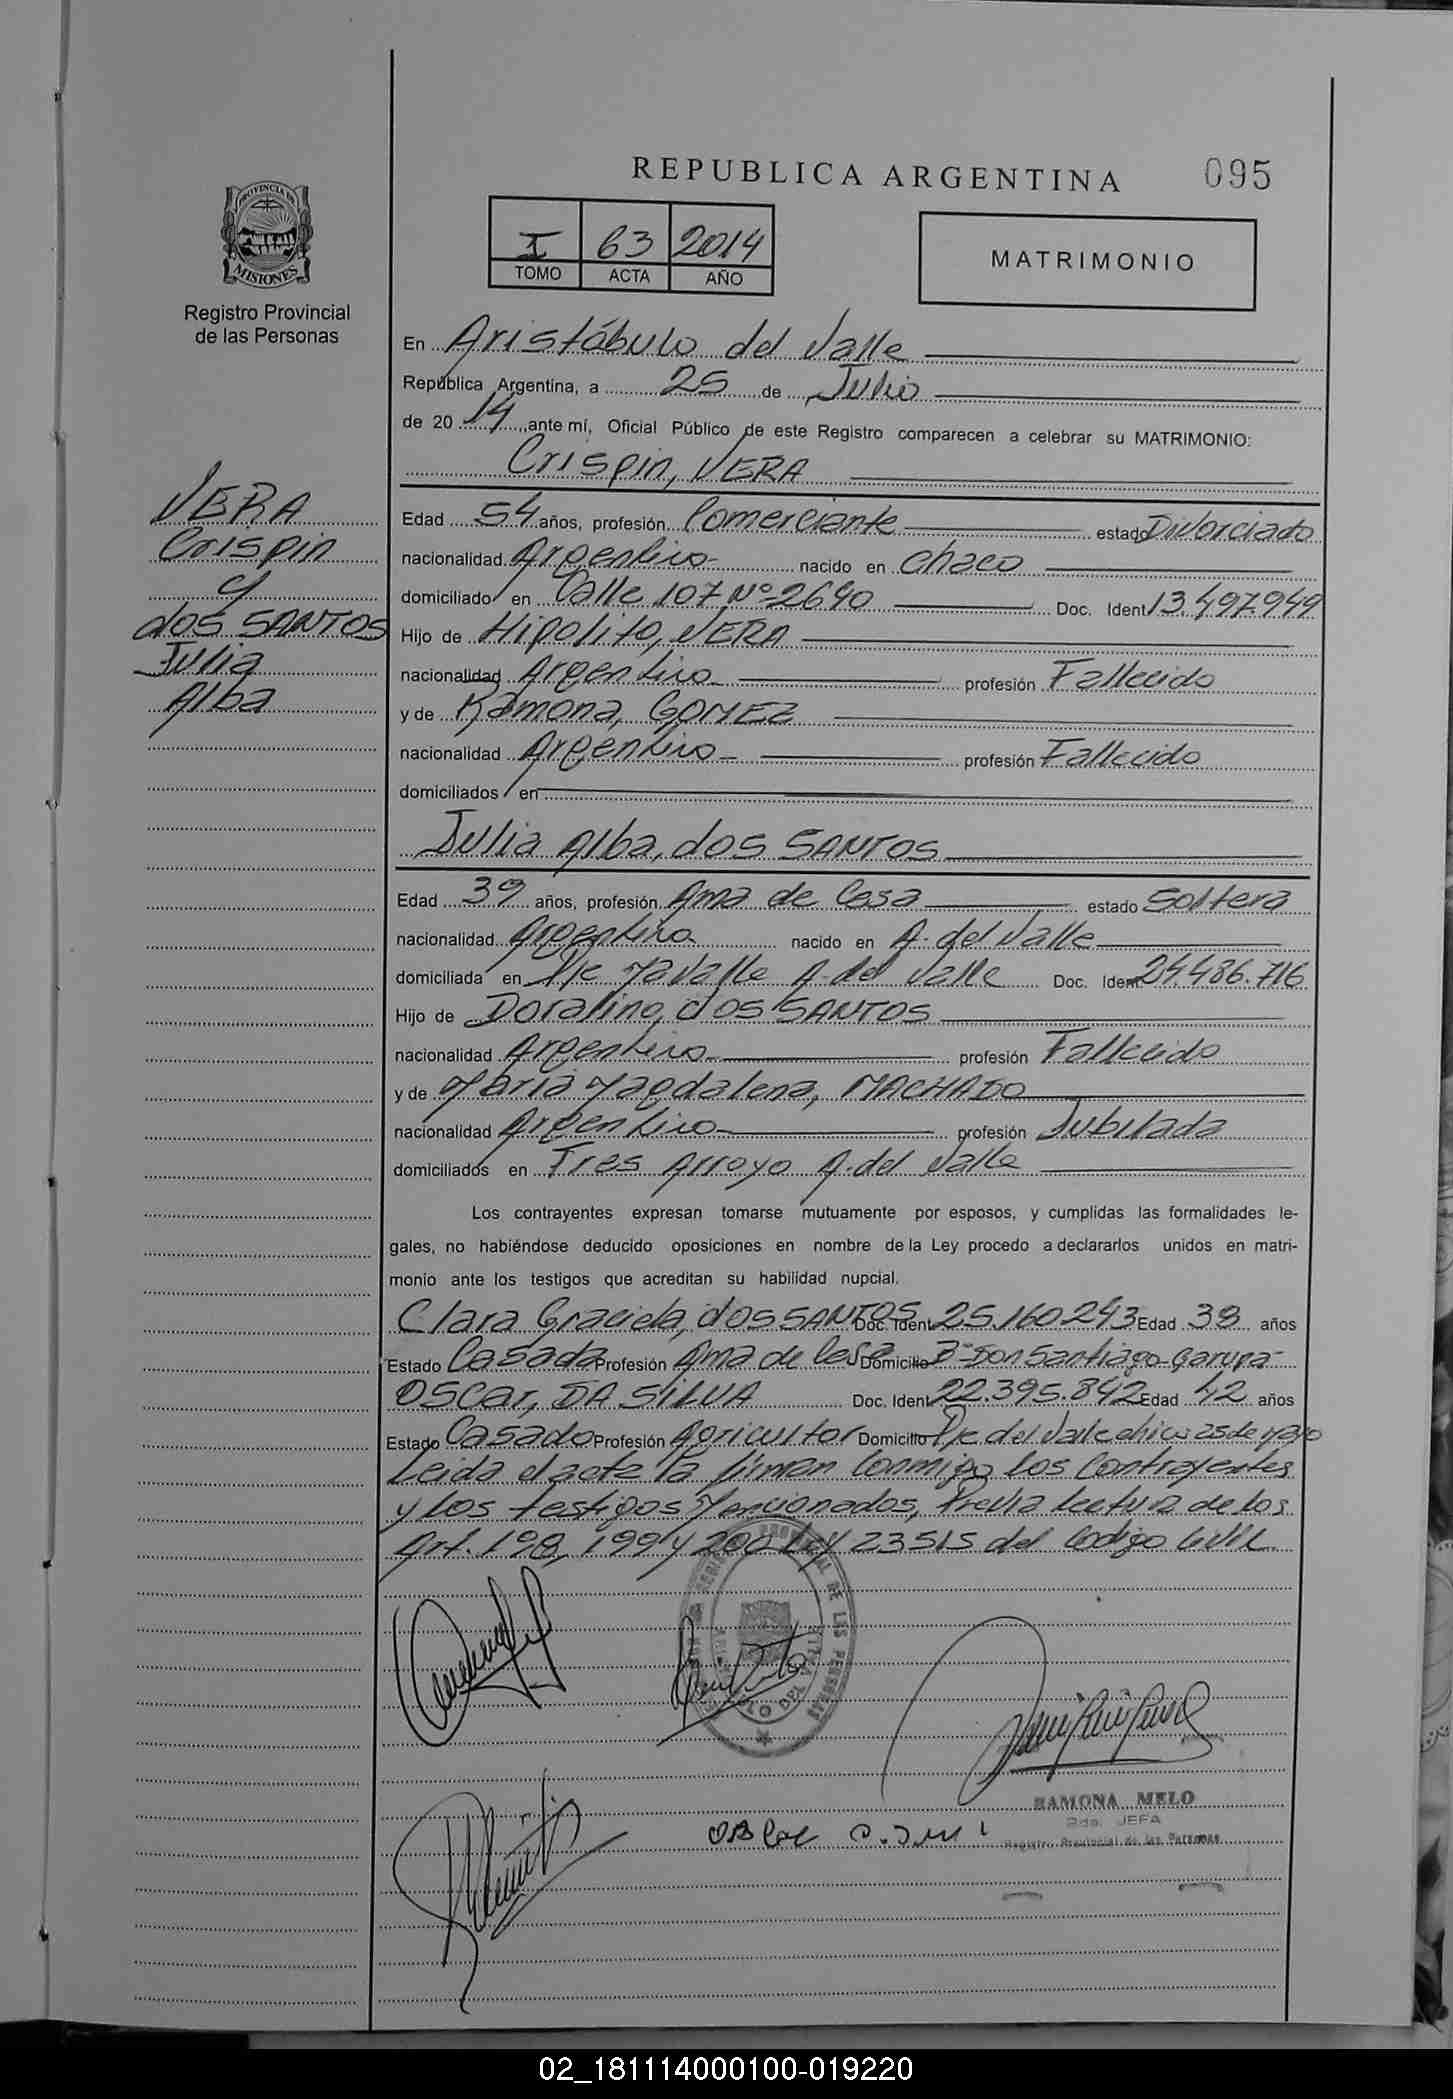 REPUBLICA ARGENTINA
095
PROVINCIA DE
MISIONES
Registro Provincial
de las Personas
I 63 2014
TOMO ACTA AÑO
MATRIMONIO
VERA
Crispin
y
dos SANTOS
Julia
Alba
En Aristóbulo del Valle
República Argentina, a 25 de Julio
de 20 14 ante mí, Oficial Público de este Registro comparecen a celebrar su MATRIMONIO:
Crispin, VERA
Edad 54 años, profesión Comerciante estado Divorciado
nacionalidad Argentino nacido en Chaco
domiciliado en Calle 107 Nº 2690 Doc. Ident 13.497.949
Hijo de Hipolito, VERA
nacionalidad Argentino profesión Fallecido
y de Ramona, GOMEZ
nacionalidad Argentino profesión Fallecido
domiciliados en
Julia Alba, dos SANTOS
Edad 39 años, profesión Ama de Casa estado Soltera
nacionalidad Argentina nacido en A. del Valle
domiciliada en A. del Valle Doc. Ident 24.486.716
Hijo de Doralino, dos SANTOS
nacionalidad Argentino profesión Fallecido
y de Maria Magdalena, MACHADO
nacionalidad Argentino profesión Jubilada
domiciliados en Tres Arroyo A. del Valle
Los contrayentes expresan tomarse mutuamente por esposos, y cumplidas las formalidades le-
gales, no habiéndose deducido oposiciones en nombre de la Ley procedo a declararlos unidos en matri-
monio ante los testigos que acreditan su habilidad nupcial.
Clara Graciela, dos SANTOS Doc. Ident 25.160.243 Edad 38 años
Estado Casada Profesión Ama de Casa Domicilio Bº Don Santiago Garupa
OSCAR, DA SILVA Doc. Ident 22.395.842 Edad 42 años
Estado Casado Profesión Agricultor Domicilio Pje. del Valle chico 25 de Mayo
Leida el acta la firman Conmigo los Contrayentes
y los testigos Mencionados, Previa lectura de los
Art. 198, 199 y 200 Ley 23515 del Codigo Civil
RAMONA MELO
2da. JEFA
Registro Provincial de las Personas
02_181114000100-019220